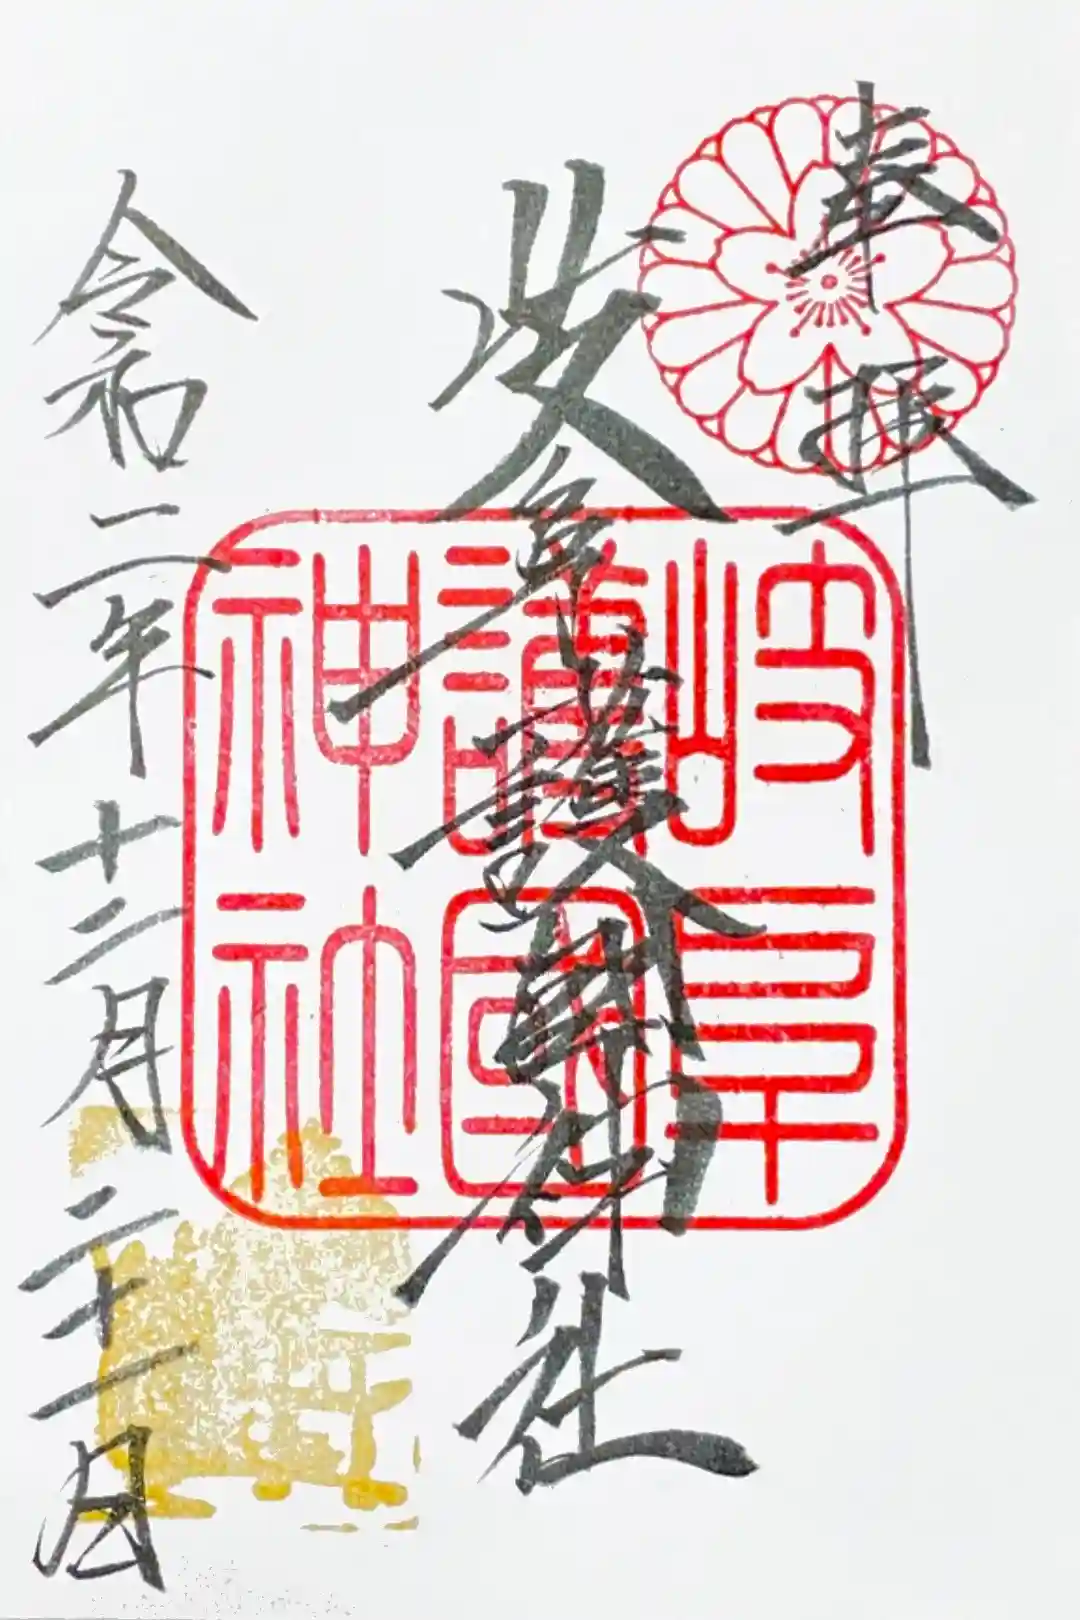 奉拝
岐阜護國神社
岐阜
護國
神社
令和二年十二月二十一日